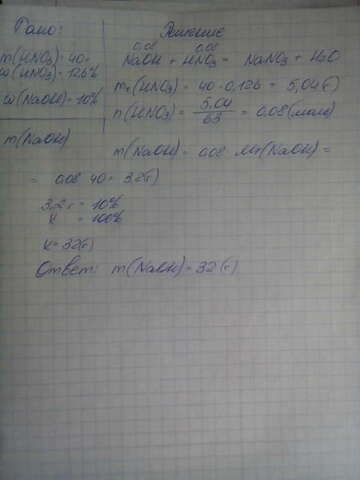 Дано:
m(HNO3)=40г
w(HNO3)=12,6%
w(NaOH)=10%
m(NaOH)
Решение
0,08 0,08
NaOH + HNO3 = NaNO3 + H2O
m1(HNO3) = 40·0,126 = 5,04(г)
n(HNO3) = 5,04/63 = 0,08(моль)
m(NaOH) = 0,08 · Mr(NaOH) =
= 0,08 · 40 = 3,2(г)
3,2г = 10%
x = 100%
x = 32(г)
Ответ: m(NaOH) = 32(г)